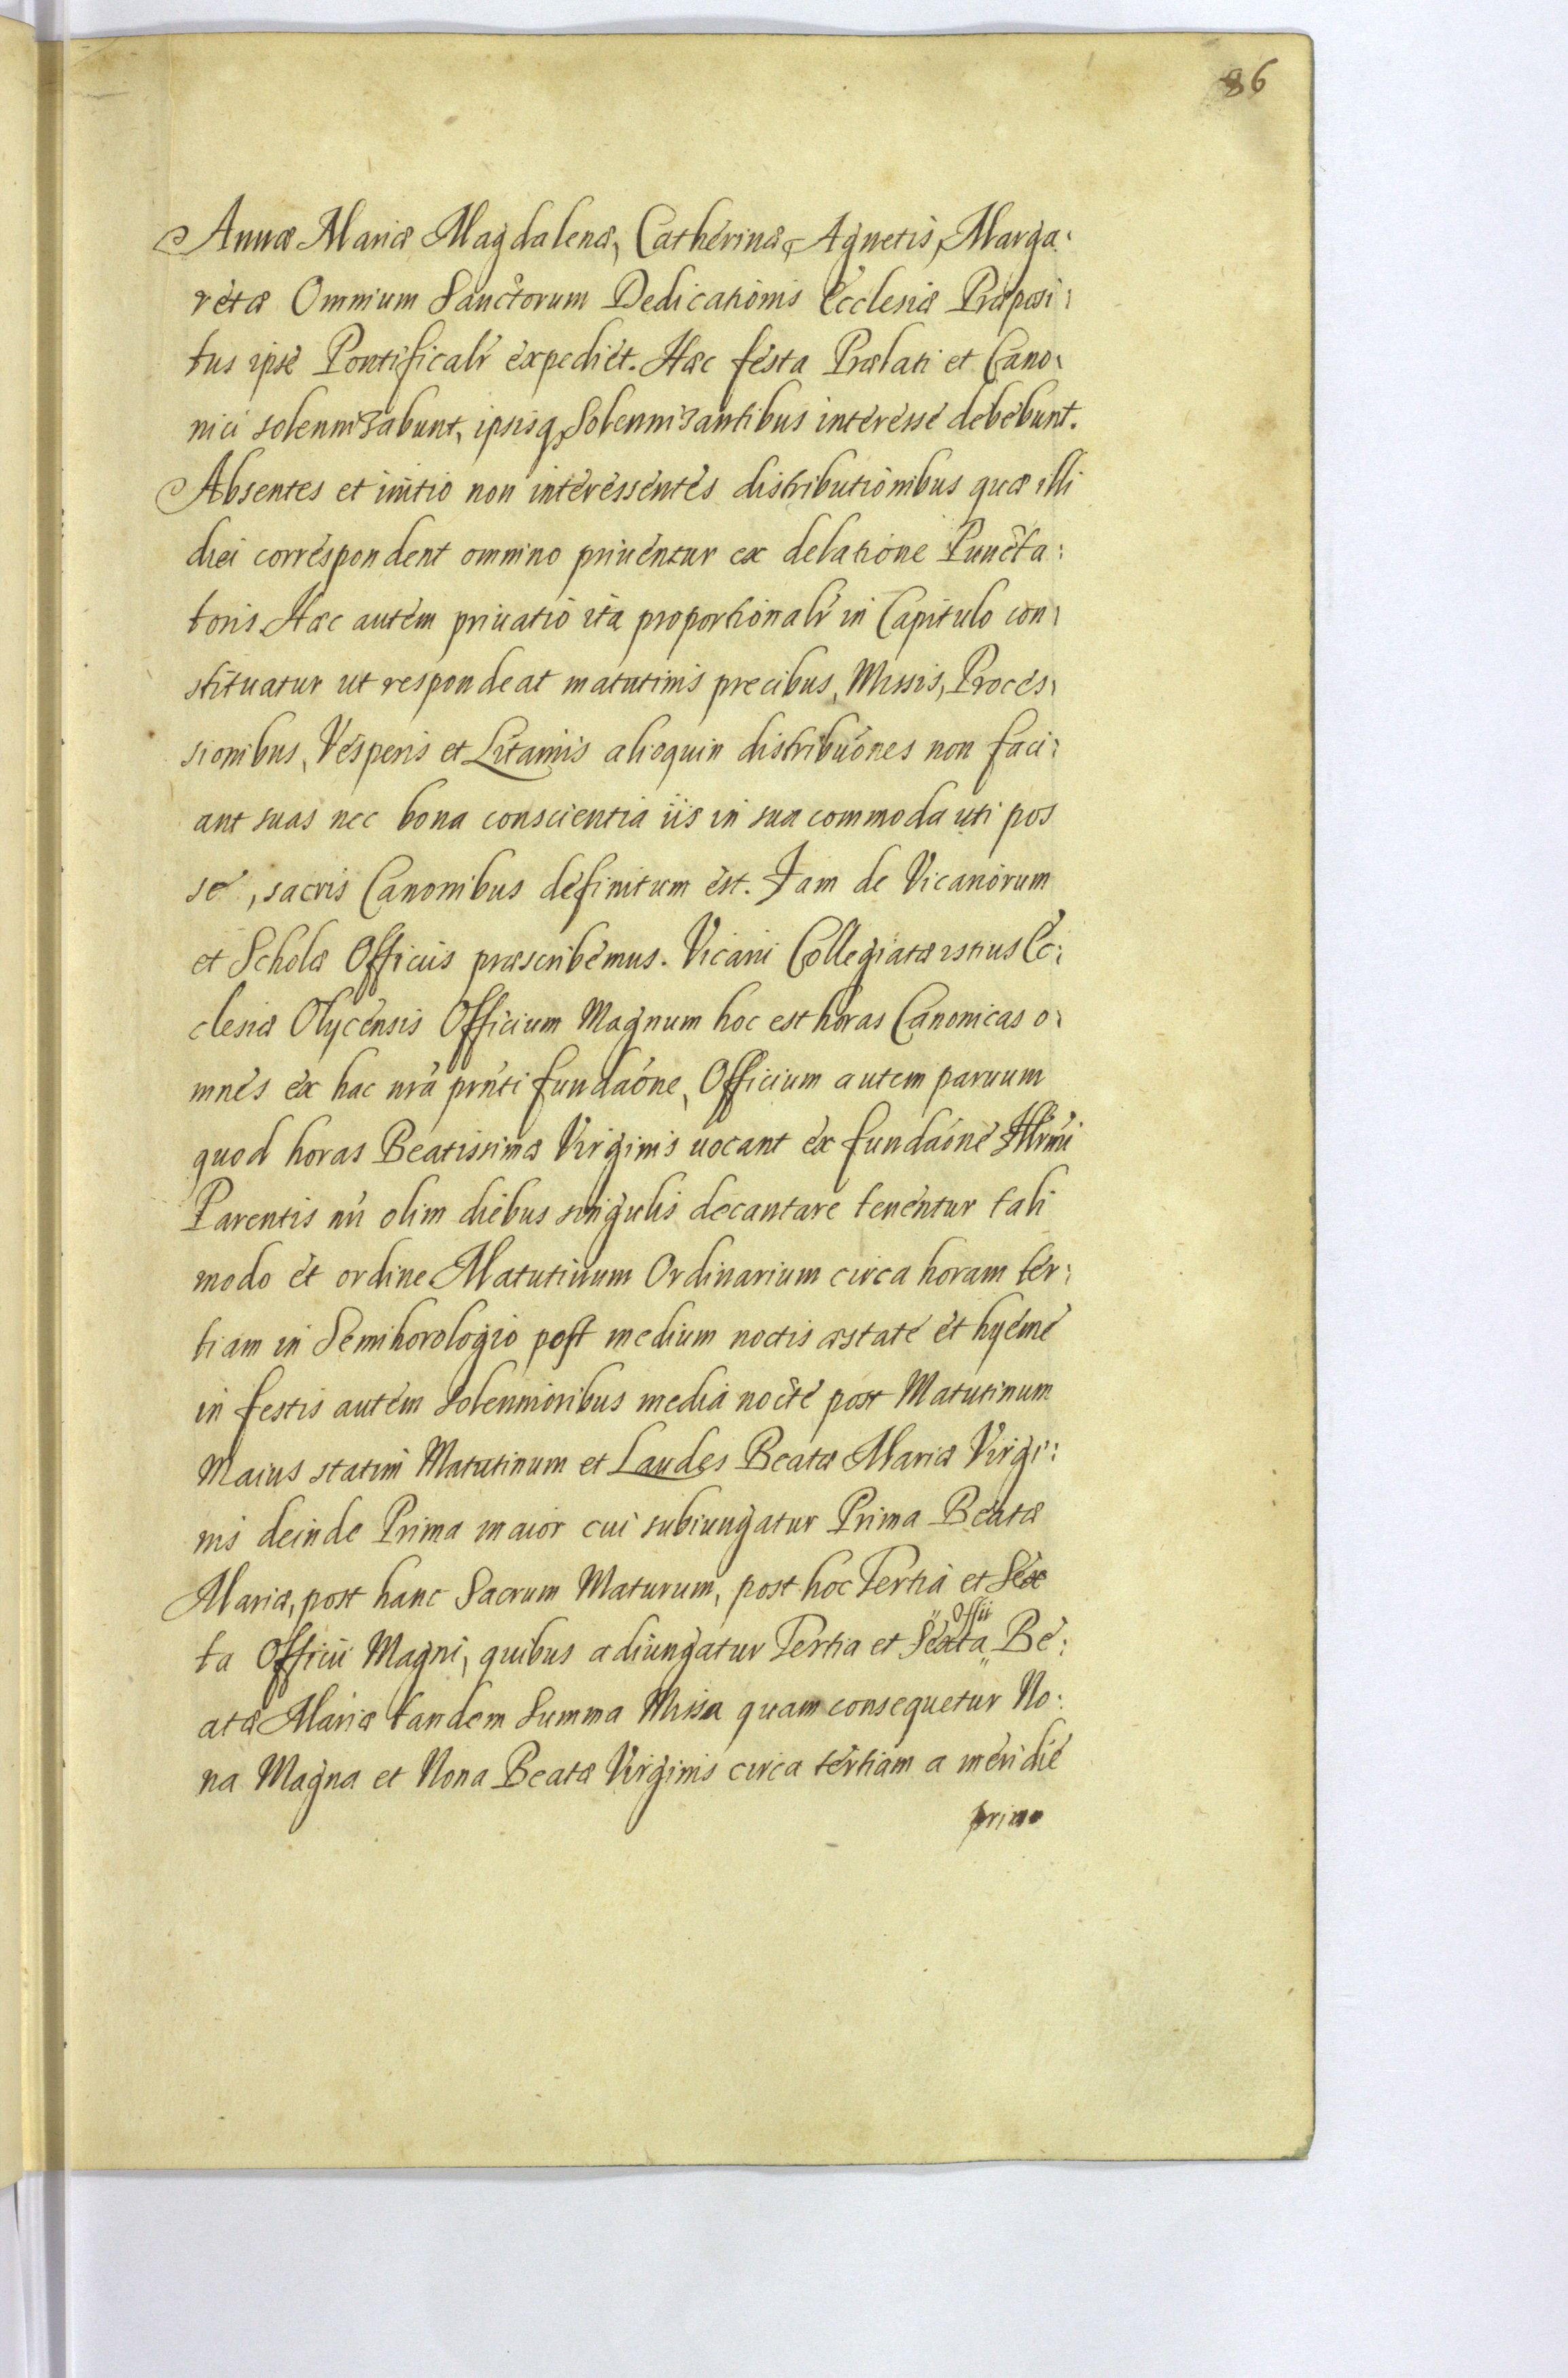 86
Annæ Mariæ Magdalenæ, Catherinæ, Agnetis, Marga:
retæ Omnium Sanctorum Dedicationis Ecclesiæ Præposi:
tus ipse Pontificalr expediet. Hæc festa Prælati et Cano:
nici solennizabunt, ipsisq, Solennizantibus interesse debebunt.
Absentes et initio non interessentes distributionibus quæ illi
diei correspondent omnino priuentur ex delatione Puncta:
toris. Hæc autem priuatio ita proportionalr in Capitulo con:
stituatur ut respondeat matutinis precibus, Missis, Proces:
sionibus, Vesperis et Litaniis alioquin distribuónes non faci:
ant suas nec bona conscientia iis in sua commoda uti pos
se, sacris Canonibus definitum est. Jam de Vicariorum
et Scholæ Officiis præscribemus. Vicarii Collegiatæ istius Ec:
clesiæ Olycensis Officium Magnum hoc est horas Canonicas o:
mnes ex hac nrá prńti fundaóne, Officium autem paruum
quod horas Beatissimæ Virginis uocant ex fundaóne Illrmi
Parentis nri olim diebus singulis decantare tenentur tali
modo et ordine Matutinum Ordinarium circa horam ter:
tiam in Semihorologio post medium noctis æstate et hyeme
in festis autem solennioribus media nocte post Matutinum
Maius statim Matutinum et Laudes Beatæ Mariæ Virgi:
nis deinde Prima maior cui subiungatur Prima Beatæ
Mariæ, post hanc Sacrum Maturum, post hoc Tertia et Sex
ta Officii Magni, quibus adiungatur Tertia et Sexta " Offii " Be:
atæ Mariæ tandem Summa Missa quam consequetur No:
na Magna et Nona Beatæ Virginis circa tertiam a meridie
primo